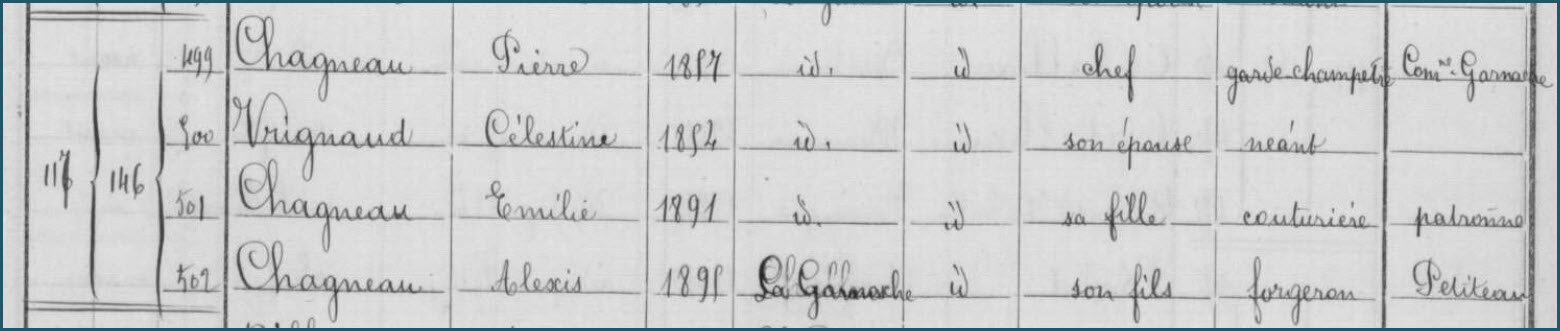 499 Chagneau Pierre 1857 id. id chef garde-champetre Comne Garnache
500 Vrignaud Célestine 1854 id. id son épouse neánt
117 146 501 Chagneau Emilie 1891 id. id sa fille couturière patronne
502 Chagneau Alexis 1895 La Garnache id son fils forgeron Petiteau